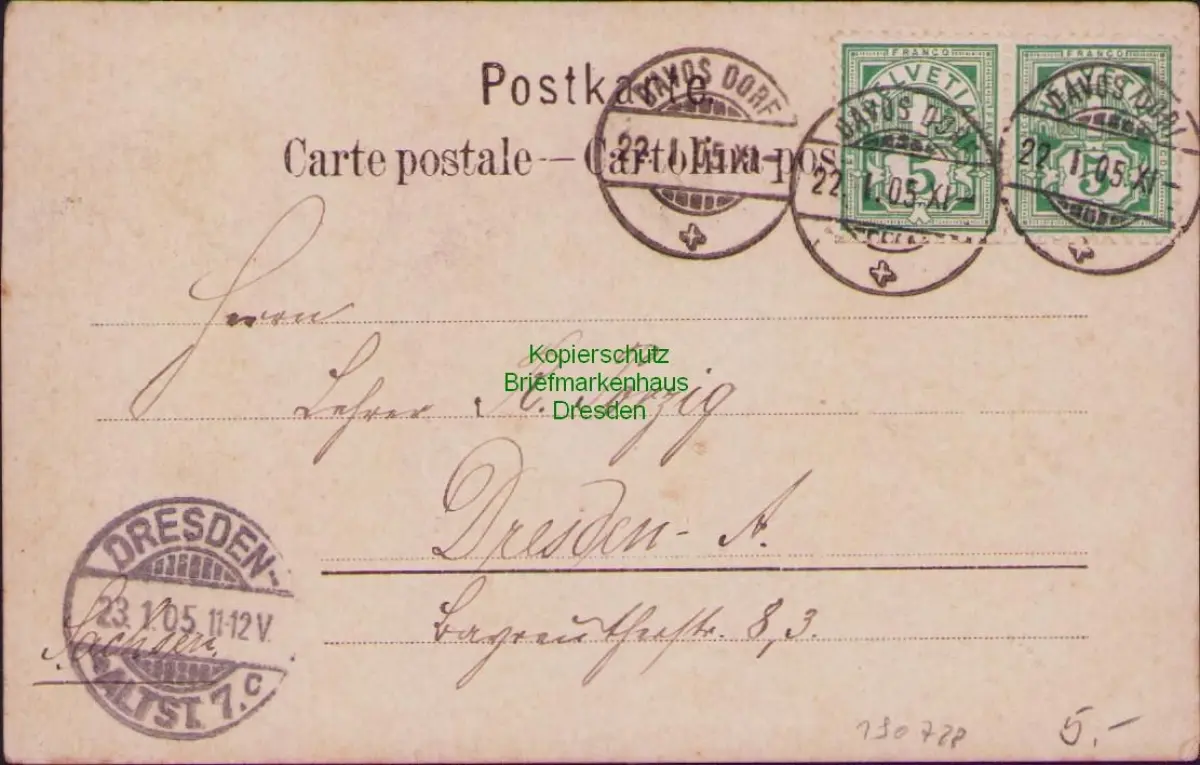 Postkarte.
Carte postale — Cartolina pos
DAVOS DORF
22. I. 05. XI–
FRANCO
HELVETIA
5
DAVOS DORF
22. I. 05. XI–
FRANCO
5
DAVOS DORF
22. I. 05. XI–
Herrn
Lehrer K.
Kopierschutz
Briefmarkenhaus
Dresden
Dresden-A.
Bayreutherstr. 8, 3.
Sachsen
DRESDEN-
23. 1. 05. 11-12 V.
ALTST. 7. c
190728
5.-